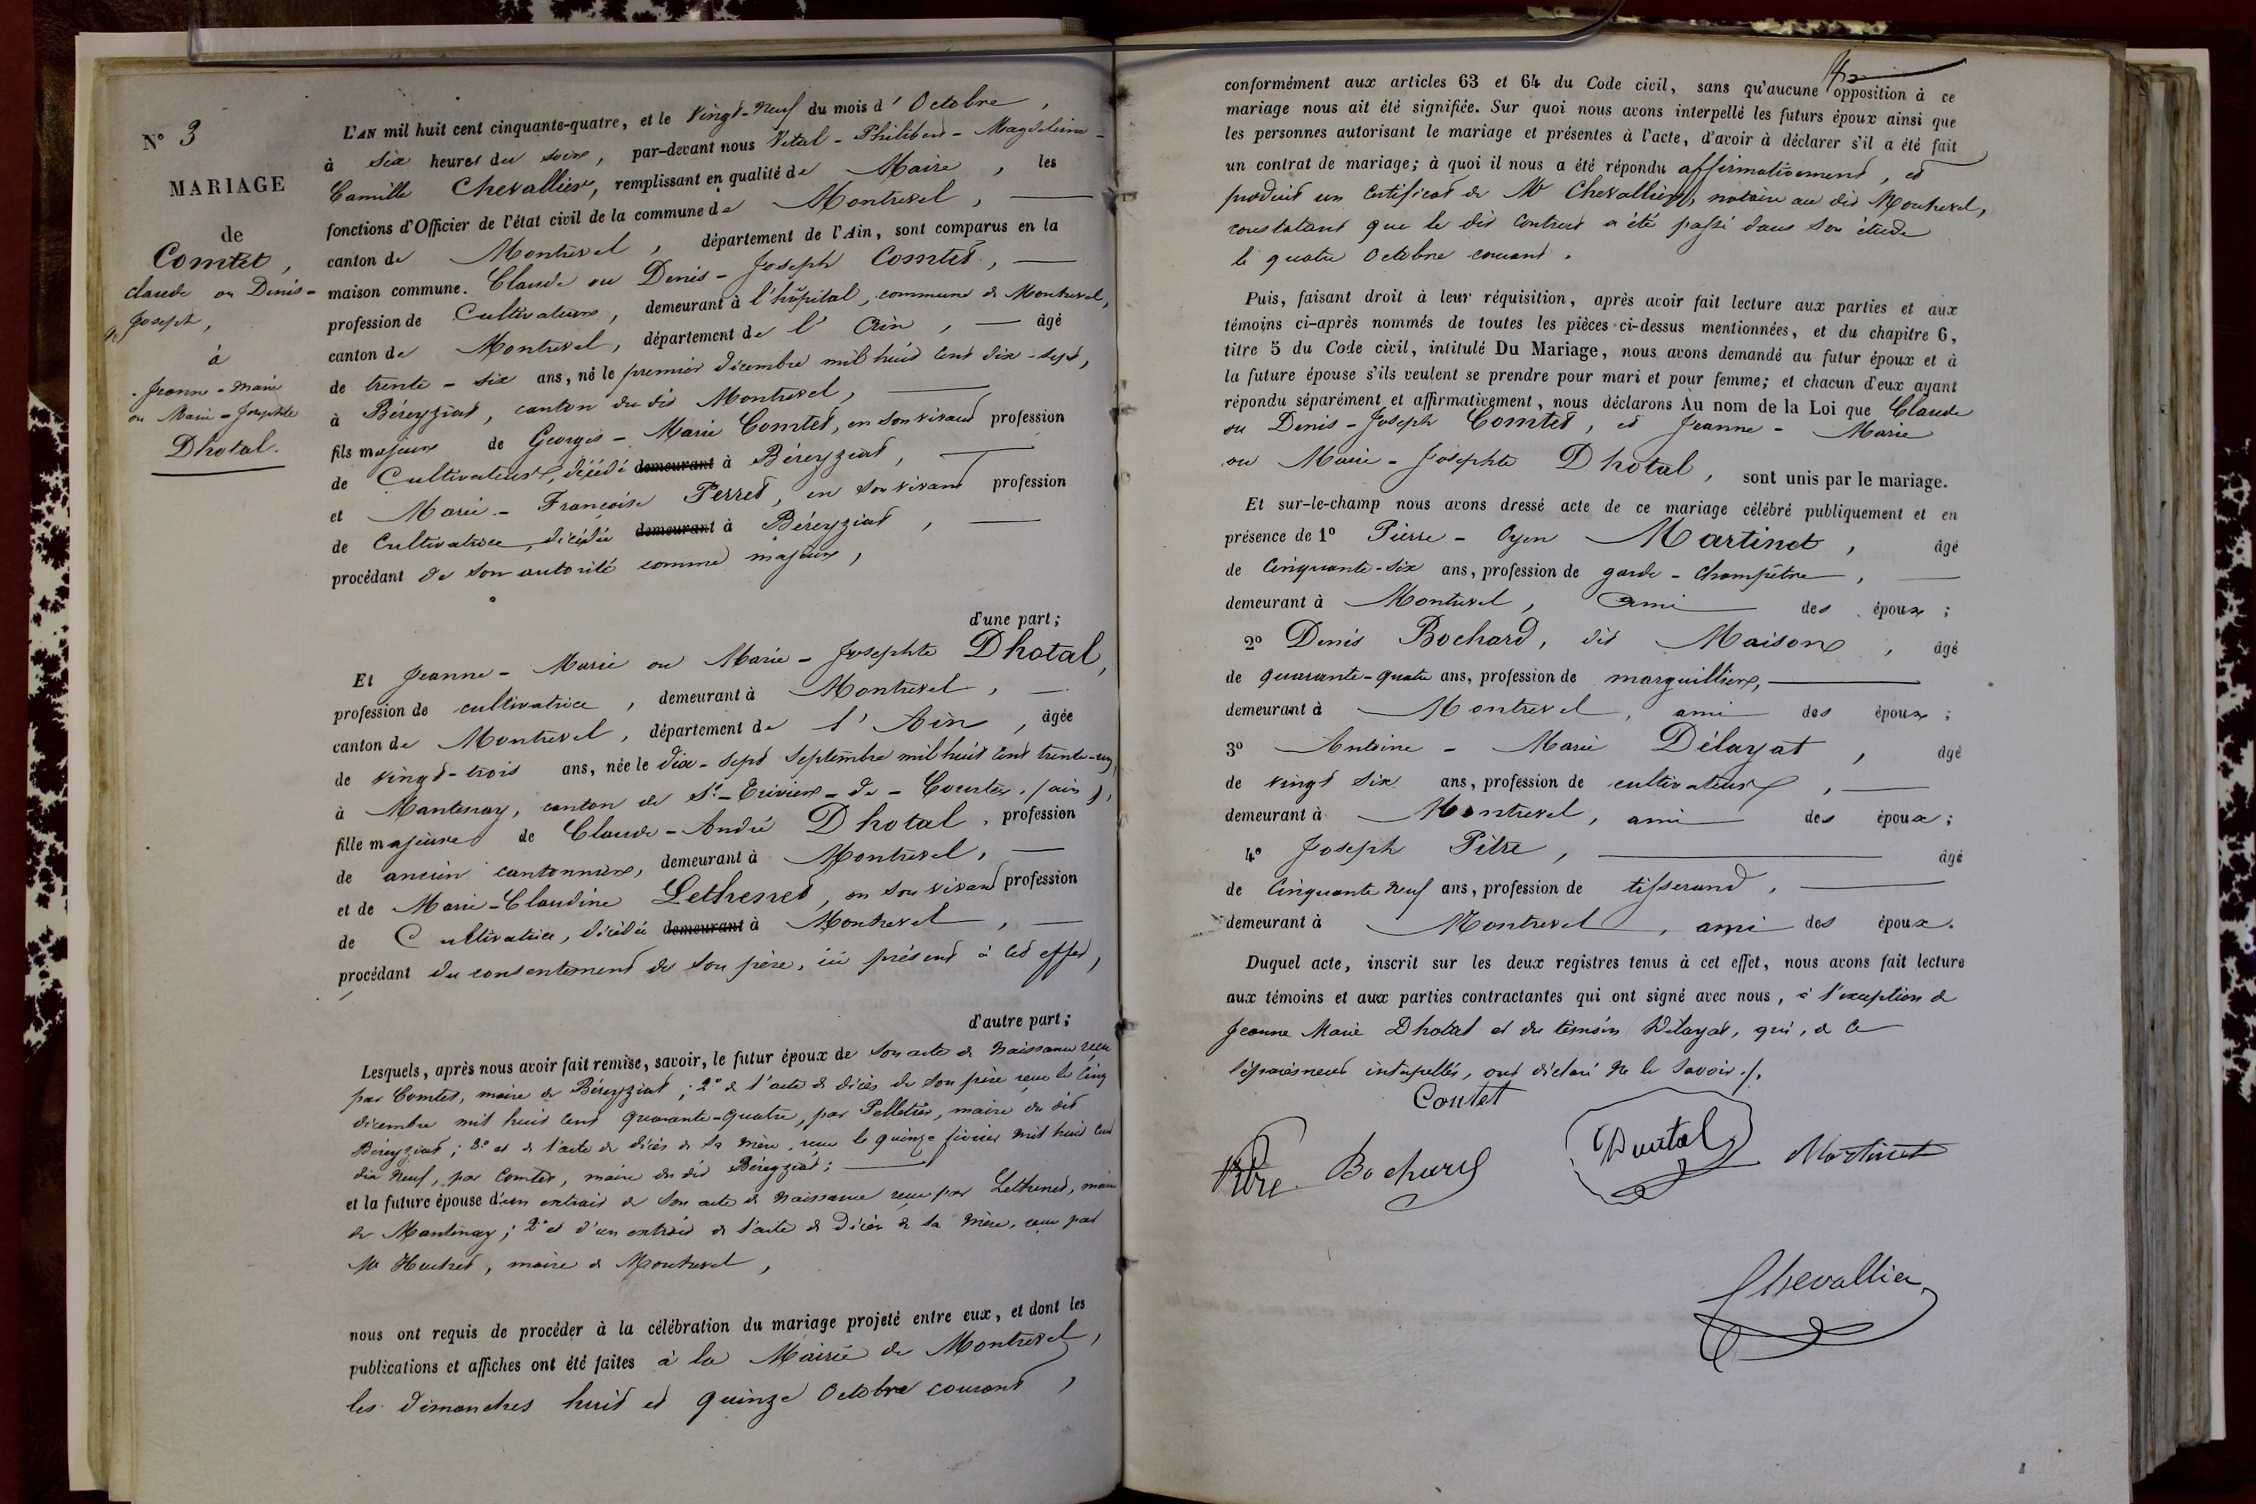 N° 3
MARIAGE
de
Comtet,
claude ou Denis-
Joseph,
à
Jeanne-Marie
ou Marie-Josephte
Dhotal.
L'AN mil huit cent cinquante-quatre, et le vingt-neuf du mois d'Octobre,
à six heures du soir, par-devant nous Vital-Philibert-Magdeleine-
Camille Chevallier, remplissant en qualité de Maire, les
fonctions d'Officier de l'état civil de la commune de Montrevel,
canton de Montrevel, département de l'Ain, sont comparus en la
maison commune. Claude ou Denis-Joseph Comtet,
profession de Cultivateur, demeurant à l'hôpital, commune de Montrevel,
canton de Montrevel, département de l'Ain, âgé
de trente-six ans, né le premier décembre mil huit cent dix-sept,
à Béreyziat, canton du dit Montrevel,
fils majeur de Georges-Marie Comtet, en son vivant profession
de Cultivateur, décédé demeurant à Béreyziat,
et Marie-Françoise Perret, en son vivant profession
de Cultivatrice, décédée demeurant à Béreyziat,
procédant de son autorité comme majeur,
d'une part;
Et Jeanne-Marie ou Marie-Josephte Dhotal,
profession de cultivatrice, demeurant à Montrevel,
canton de Montrevel, département de l'Ain, âgée
de vingt-trois ans, née le dix-sept septembre mil huit cent trente-un,
à Mantenay, canton de St-Trivier-de-Courtes (ain),
fille majeure de Claude-André Dhotal, profession
de ancien cantonnier, demeurant à Montrevel,
et de Marie-Claudine Lethenet, en son vivant profession
de Cultivatrice, décédée demeurant à Montrevel,
procédant du consentement de son père, ici présent à cet effet,
d'autre part;
Lesquels, après nous avoir fait remise, savoir, le futur époux de son acte de naissance reçu
par Comtet, maire de Béreyziat; 2° de l'acte de décès de son père reçu le cinq
décembre mil huit cent quarante-quatre, par Pelletier, maire du dit
Béreyziat; 3° et de l'acte de décès de sa mère, reçu le quinze février mil huit cent
dix neuf, par Comtet, maire du dit Béreyziat;
et la future épouse d'un extrait de son acte de naissance reçu par Lethenet, maire
de Mantenay; 2° et d'un extrait de l'acte de décès de sa mère, reçu par
Mr, maire de Montrevel,
nous ont requis de procéder à la célébration du mariage projeté entre eux, et dont les
publications et affiches ont été faites à la Mairie de Montrevel,
les dimanches huit et quinze Octobre courant,
conformément aux articles 63 et 64 du Code civil, sans qu'aucune opposition à ce
mariage nous ait été signifiée. Sur quoi nous avons interpellé les futurs époux ainsi que
les personnes autorisant le mariage et présentes à l'acte, d'avoir à déclarer s'il a été fait
un contrat de mariage; à quoi il nous a été répondu affirmativement, et
produit un certificat de Mr Chevallier, notaire au dit Montrevel,
constatant que le dit contrat a été passé dans son étude
le quatre Octobre courant.
Puis, faisant droit à leur réquisition, après avoir fait lecture aux parties et aux
témoins ci-après nommés de toutes les pièces ci-dessus mentionnées, et du chapitre 6,
titre 5 du Code civil, intitulé Du Mariage, nous avons demandé au futur époux et à
la future épouse s'ils veulent se prendre pour mari et pour femme; et chacun d'eux ayant
répondu séparément et affirmativement, nous déclarons Au nom de la Loi que Claude
ou Denis-Joseph Comtet, et Jeanne-Marie
ou Marie-Josephte Dhotal, sont unis par le mariage.
Et sur-le-champ nous avons dressé acte de ce mariage célébré publiquement et en
présence de 1° Pierre-Oyen Martinet, âgé
de cinquante-six ans, profession de garde-champêtre,
demeurant à Montrevel, ami des époux;
2° Denis Bochard, dit Maison, âgé
de quarante-quatre ans, profession de marguillier,
demeurant à Montrevel, ami des époux;
3° Antoine-Marie Délayat, âgé
de vingt six ans, profession de cultivateur,
demeurant à Montrevel, ami des époux;
4° Joseph Pitre, âgé
de cinquante neuf ans, profession de tisserand,
demeurant à Montrevel, ami des époux.
Duquel acte, inscrit sur les deux registres tenus à cet effet, nous avons fait lecture
aux témoins et aux parties contractantes qui ont signé avec nous, à l'exception de
Jeanne Marie Dhotal et du témoin Délayat, qui, de ce
séparément interpellés, ont déclaré ne le savoir./.
Contet
Pitre Bochard Dautal Martinet
Chevallier